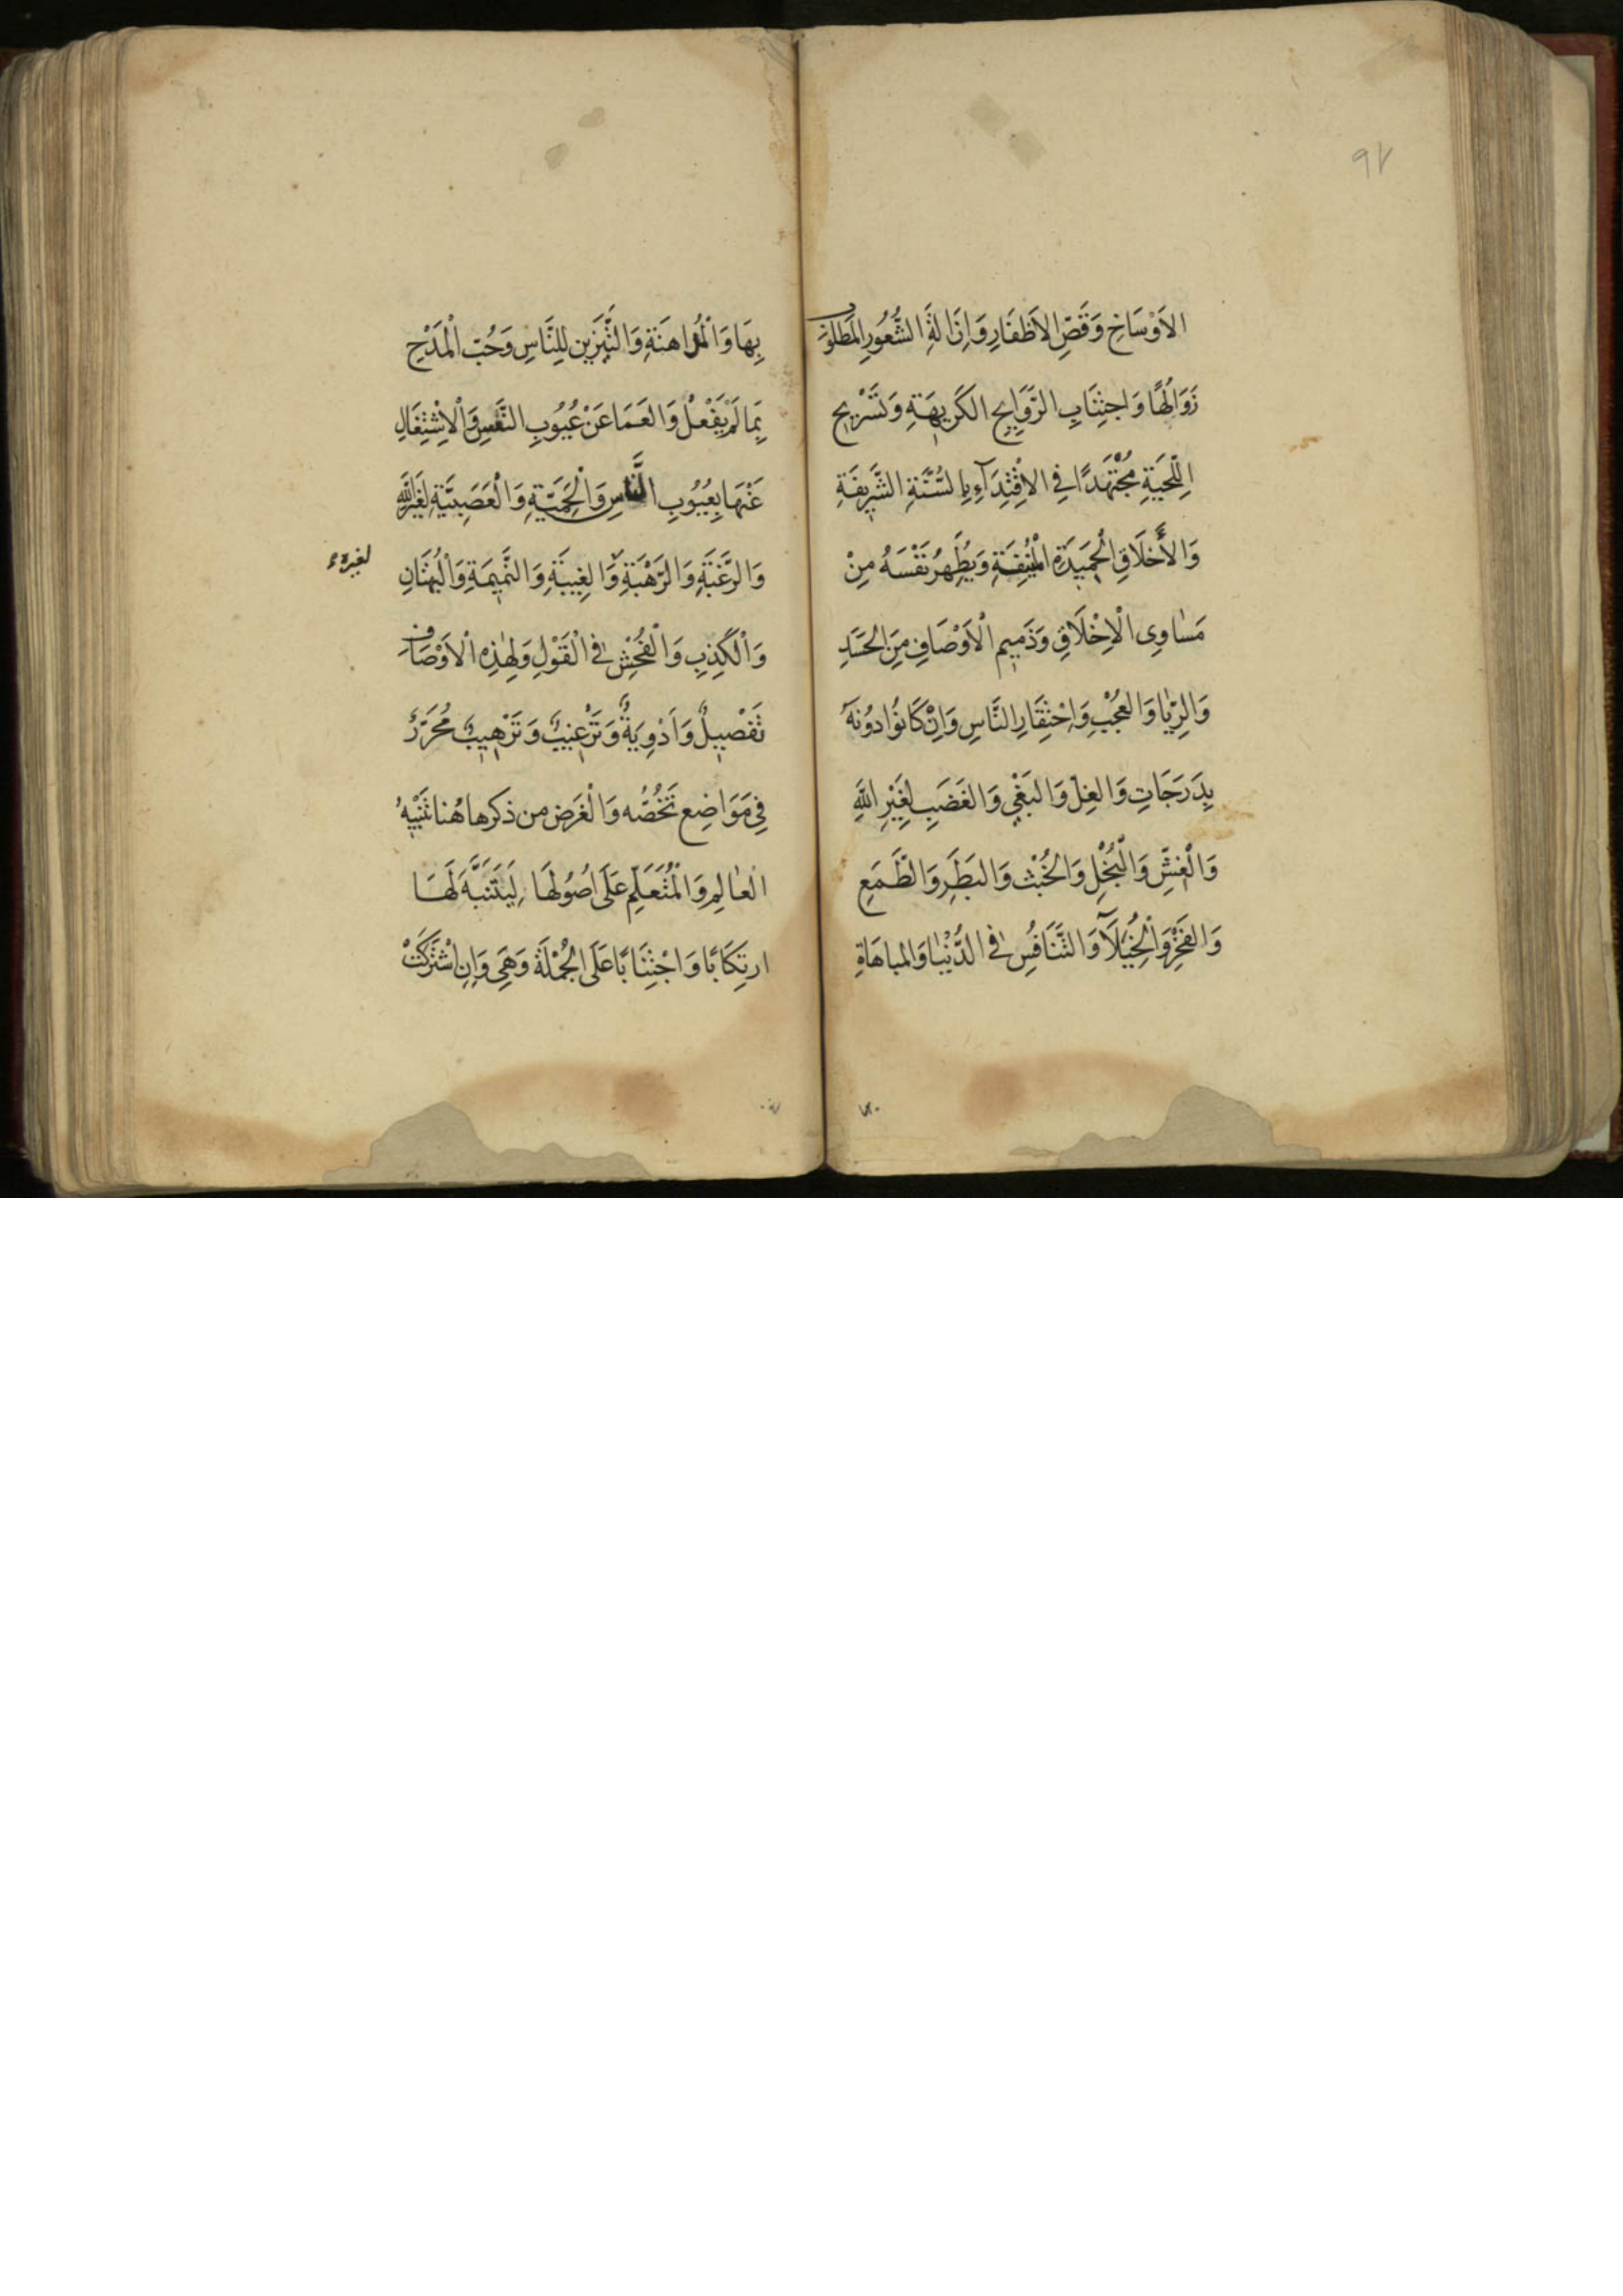 ٩٢
الاَوْسَاخِ وَقَصِّ الاَظفَارِ وَاِزَالَةِ الشُّعُورِ المَطلُوب
زَوَالُهَا وَاجتِنَابِ الرَّوَايِحِ الكَرِيهَةِ وَتَسْرِيحِ
اللِّحيَةِ مُجْتَهِدًا فِي الاِقْتِدَآءِ بِالسُّنَّةِ الشَّرِيفَةِ
وَالأَخلَاقِ الْحَمِيدَةِ الْمُنِيفَةِ وَيُطَهِّرُ نَفْسَهُ مِنْ
مَسَاوِى الْاِخْلَاقِ وَذَمِيمِ الْاَوْصَافِ مِنَ الحَسَدِ
وَالرِّيَا وَالعُجْبِ وَاِحْتِقَارِ النَّاسِ وَاِنْ كَانُوا دُونَهُ
بِدَرَجَاتٍ وَالغِلِ وَالبَغْيِ وَالغَضَبِ لِغَيْرِ اللَّهِ
وَالْغِشِّ وَالْبُخْلِ وَالخُبْثِ وَالبَطَرِ وَالطَّمَعِ
وَالفَخْرِ وَالْخُيَلَآ وَالتَّنَافُسِ فِى الدُّنْيَا وَالمباهَاةِ
بِهَا وَالْمُداهَنَةِ وَالتَّزَيُّنِ لِلنَّاسِ وَحُبِّ الْمَدْحِ
بِمَا لَمْ يَفْعَلْ وَالعَمَا عَنْ عُيُوبِ النَّفْسِ وَالْاِشْتِغَالِ
عَنْهَا بِعُيُوبِ النَّاسِ وَالْحَمِيَّةِ وَالْعَصَبِيَّةِ لِغَيْرِ اللَّهِ
وَالرَّغْبَةِ وَالرَّهْبَةِ وَالغِيبَةِ وَالنَّمِيمَةِ وَالْبُهْتَانِ
لغيره
وَالْكَذِبِ وَالْفُحْشِ فِى الْقَوْلِ وَلِهٰذِهِ الْاَوْصَاف
تَفْصِيلٌ وَاَدْوِيَةٌ وَتَرْغِيبٌ وَتَرْهِيبٌ مُحَرَّرٌ
فِى مَوَاضِع تَخُصُّه وَالْغَرَض من ذكرها هُنا تَنْبِيهُ
العَالِمِ وَالْمُتَعَلِّمِ عَلَى اُصُولِهَا لِيَتَنَبَّهَ لَهَا
ارتِكَابًا وَاجْتِنَابًا عَلَى الْجُمْلَةِ وَهِىَ وَاِنِ اشْتَرَكَتْ